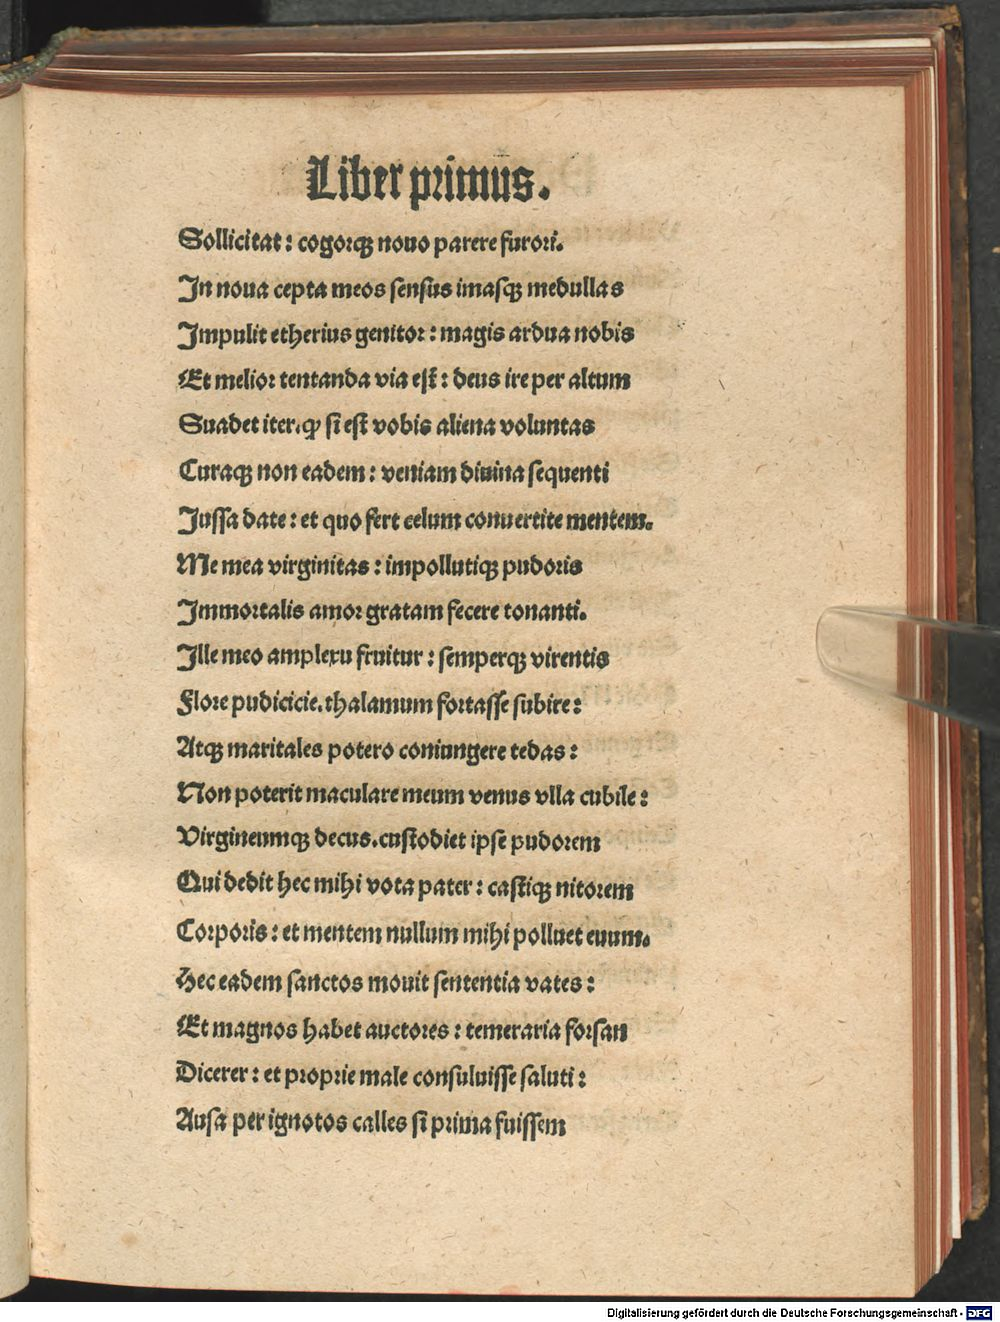 Liber primus.
Sollicitat: cogorqꝫ nouo parere furori.
In noua cepta meos sensus imasqꝫ medullas
Impulit etherius genitor: magis ardua nobis
Et melior tentanda via est: deus ire per altum
Suadet iter. ꝙ si est vobis aliena voluntas
Curaqꝫ non eadem: veniam diuina sequenti
Jussa date: et quo fert celum conuertite mentem.
Me mea virginitas: impollutiqꝫ pudoris
Immortalis amor gratam fecere tonanti.
Ille meo amplexu fruitur: semperqꝫ virentis
Flore pudicicie. thalamum fortasse subire:
Atqꝫ maritales potero coniungere tedas:
Non poterit maculare meum venus vlla cubile:
Virgineumqꝫ decus. custodiet ipse pudorem
Qui dedit hec mihi vota pater: castiqꝫ nitorem
Corporis: et mentem nullum mihi polluet euum.
Hec eadem sanctos mouit sententia vates:
Et magnos habet auctores: temeraria forsan
Dicerer: et proprie male consuluisse saluti:
Ausa per ignotos calles si prima fuissem
Digitalisierung gefördert durch die Deutsche Forschungsgemeinschaft - DFG